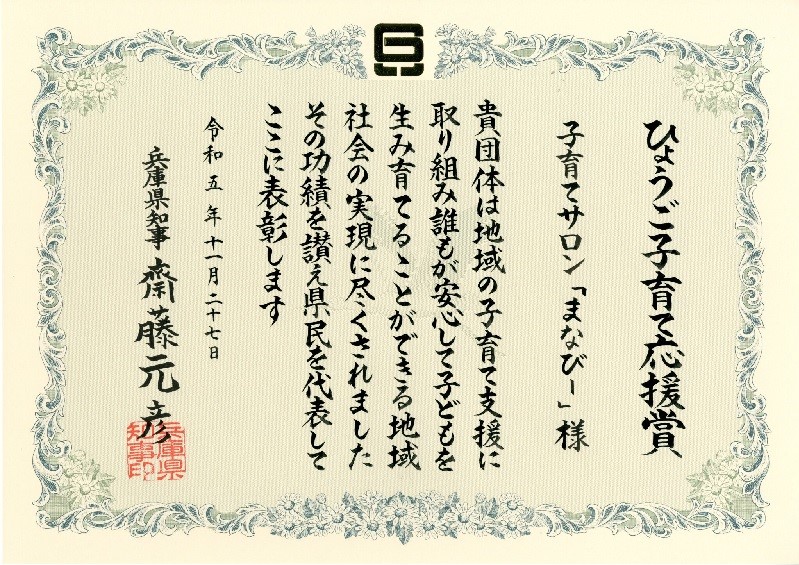 ひょうご子育て応援賞
子育てサロン「まなびー」様
貴団体は地域の子育て支援に
取り組み誰もが安心して子どもを
生み育てることができる地域
社会の実現に尽くされました
その功績を讃え県民を代表して
ここに表彰します
令和五年十一月二十七日
兵庫県知事 齋藤元彦
兵庫県
知事印